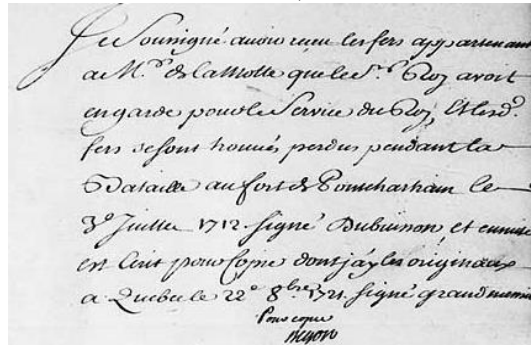 Je Soussigné avoir receu les fers appartenant
a M.r de la Motte que le S.r Roy avoit
en garde pour le Service du Roy, et lesd.
fers se sont trouvés perdus pendant la
Bataille au fort de Pontchartrain le
3e Juillet 1712 signé Dubuisson et ensuite
est Ecrit pour Copie dont j'ay les originaux
a Quebec le 22e 8bre 1721 signé grandmesnil
Pour copie
Begon